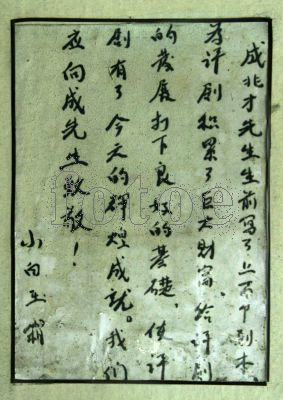 成兆才先生生前写了上百个剧本,
为评剧积累了巨大财富,给评剧
的发展打下良好的基礎,使评
剧有了今天的辉煌成就。我们
应向成先生献敬!
小白玉霜
fotoe